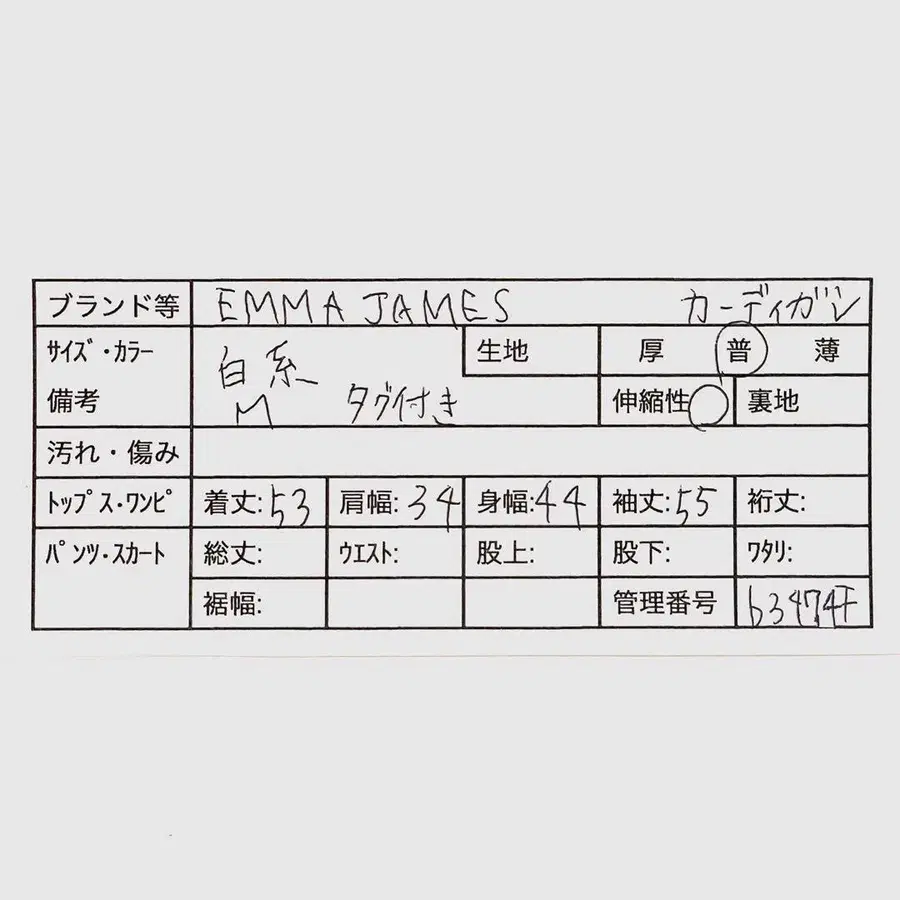 ブランド等 EMMA JAMES カーディガン
サイズ・カラー 白系 生地 厚 普 薄
備考 M タグ付き 伸縮性 裏地
汚れ・傷み
トップス・ワンピ 着丈:53 肩幅:34 身幅:44 袖丈:55 裄丈:
パンツ・スカート 総丈: ウエスト: 股上: 股下: ワタリ:
裾幅: 管理番号